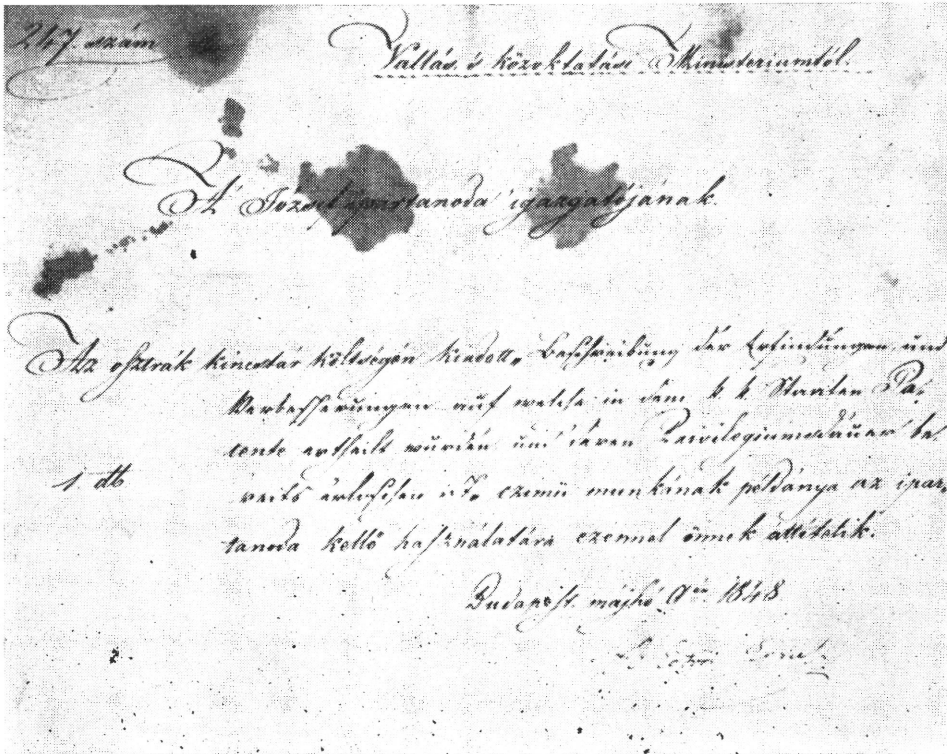 247. szám
Vallás és közoktatási Ministeriumtól.
A József ipartanoda igazgatójának.
Az osztrák kincstár költségén kiadott „Beschreibung der Erfindungen und
Verbesserungen auf welche in dem k. k. Staaten Pa-
tente ertheilt wurden und deren Privilegiumsdauer be-
1. db
reits erloschen ist" czimü munkának példánya az ipar-
tanoda kellő használatára ezennel önnek áttétetik.
Budapest. majhó 9én 1848